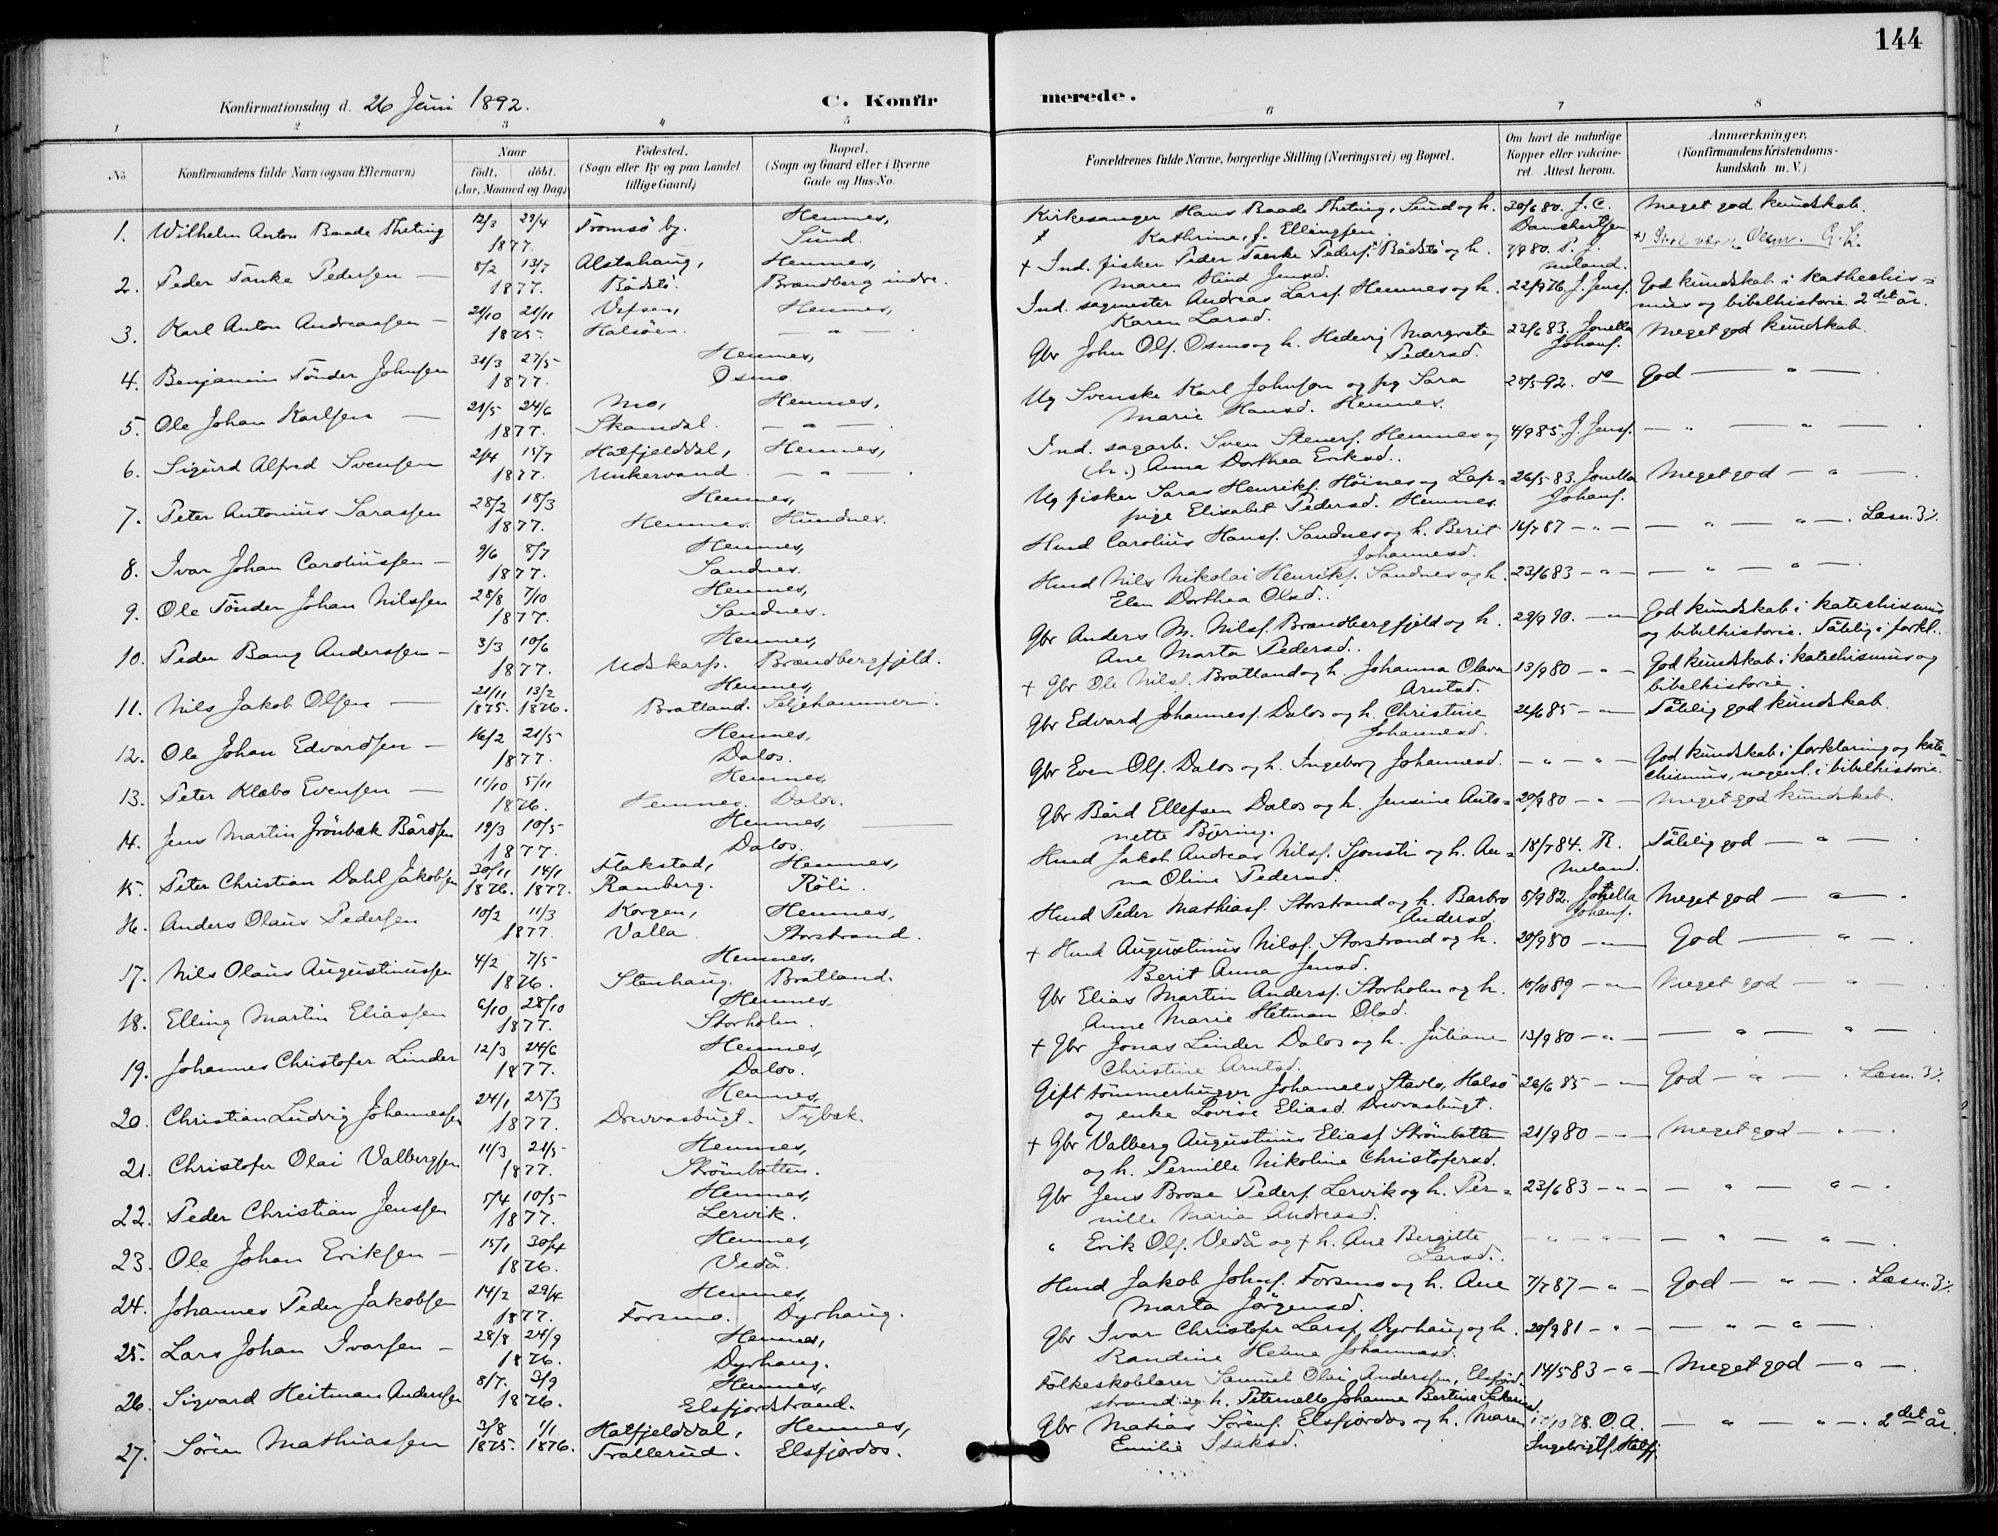 144
Konfirmationsdag d. 26 Juni 1892.
C. Konfirmerede.
1 2 3 4 5 6 7 8
No
Konfirmandens fulde Navn (ogsaa Efternavn)
Naar
født. døbt.
(Aar, Maaned og Dag)
Fødested.
(Sogn eller By og paa Landet
tillige Gaard)
Bopæl.
(Sogn og Gaard eller i Byerne
Gade og Hus-No.
Forældrenes fulde Navne, borgerlige Stilling (Næringsvei) og Bopæl.
Om havt de naturlige
Kopper eller vakcine-
ret. Attest herom.
Anmærkninger.
(Konfirmandens Kristendoms-
kundskab m. V.)
1. Wilhelm Anton Baade Theting 12/3 29/4 Tromsö by. Hemnes, Kirkesanger Hans Baade Theting, Sund og h. 30/6 80. J. C. Meget god kundskab.
1877. Sund. Kathrine, f. Ellingsen.
2. Peder Tanke Pedersen — 8/2 13/7 Alstahaug, Hemnes, + Ind. fisker Peder Tanke Peders. Bådstö og h. 7/9 80.
1877. Bådstö. Brændberg indre. Maren Hind Jensd.
3. Karl Anton Andreassen — 21/10 21/11 Vefsen, Hemnes, Ind. sagmester Andreas Larss. Hemnes og h. 22/9 76 J. Jens. God kundskab i kathechis-
1875. Halsöen. — " — Karen Larsd. mus og bibelhistorie. 2det år.
4. Benjamin Tönder Johnsen 31/3 27/5 Hemnes, Gbr John Ols. Osmo og h. Hedevig Margrete 23/6 83. Jonella Meget god kundskab.
1877. Osmo. Pedersd. Johans.
5. Ole Johan Karlsen — 21/5 24/6 Mo, Hemnes, Ug Svenske Karl Johnson og pg Sara 28/5 92. do God — " —.
1877. Skamdal. — " — Marie Hansd. Hemnes.
6. Sigurd Alfred Svensen 2/4 15/7 Hatfjelddal, Hemnes, Ind. sagarb. Sven Steners. Hemnes og 4/9 85. J. Jens. — " — " —.
1877. Unkervand — " —. (h.) Anna Dorthea Eriksd.
7. Peter Antonius Sarassen 28/2 18/3 Hemnes, Ug fisker Saras Henriks. Höines og Lap- 26/5 83. Jonella Meget god — " —.
1877. Hemnes. Hundnes. pige Elisabet Pedersd. Hemnes. Johans.
8. Ivar Johan Caroliussen — 9/6 8/7 Hemnes, Hmd Carolius Hans. Sandnes og h. Berit 16/7 87 — " — — " — " —. Læsn. 3.
1877. Sandnes. Johannesd.
9. Ole Tönder Johan Nilssen 28/8 7/10 Hemnes, Hmd Nils Nikolai Henriks. Sandnes og h. 23/6 83 — " — — " — " —.
1877. Sandnes. Elen Dorthea Olsd.
10. Peder Bang Anderssen — 3/3 10/6 Hemnes, Gbr Anders M. Nils. Brændbergfjeld og h. 29/9 90. — " — God kundskab i katechismus
1877. Udskarp. Brændbergfjeld. Ane Marta Pedersd. og bibelhistorie. Tålelig i forkl.
11. Nils Jakob Olsen — 21/11 13/2 Hemnes, + Gbr Ole Nils. Bratland og h. Johanna Olava 13/9 80 — " — God kundskab i katechismus og
1875. 1876. Bratland. Seljehammer. Arntsd. bibelhistorie.
12. Ole Johan Edvardsen — 16/2 21/5 Hemnes, Gbr Edvard Johannes. Dalos og h. Christine 26/6 85 — " — Tålelig god kundskab.
1877. Dalos. Johannesd.
13. Peter Klæbo Evensen — 11/10 5/11 Hemnes, Gbr Even Ols. Dalos og h. Ingeborg Johannesd. — " — " — God kundskab i forklaring og kate-
1876. Hemnes. Dalos. chismus, noget i bibelhistorie.
14. Jens Martin Grönbæk Bårdsen 19/3 10/5 Hemnes, Gbr Bård Ellefsen Dalos og h. Jensine Anto- 20/9 80 — " — Meget god kundskab.
1877. Dalos. nette Bjering.
15. Peter Christian Dahl Jakobsen 30/11 14/1 Flakstad, Hemnes, Hmd Jakob Andreas Nils. Sjonsti og h. An- 18/7 84. R. Tålelig god — " —.
1876. 1877. Ramberg. Röli. na Oline Pedersd. Meland.
16. Anders Olaus Pedersen 10/2 11/3 Korgen, Hemnes, Hmd Peder Mathias. Storstrand og h. Barbro 5/9 82. Jonella Meget god — " —.
1877. Valla. Storstrand. Andersd. Johans.
17. Nils Olaus Augustinussen 4/2 7/5 Hemnes, + Hmd Augustinus Nils. Storstrand og h. 20/9 80 — " — God — " —.
1876. Stenhaug. Bratland. Berit Anna Jensd.
18. Elling Martin Eliassen 6/10 28/10 Hemnes, Gbr Elias Martin Anders. Storholm og h. 10/10 89 — " — Meget god — " —
1877. Storholm. Anne Marie Hetman Olsd.
19. Johannes Christofer Linder 12/3 24/6 Hemnes, + Gbr Jonas Linder Dalos og h. Juliane 13/9 80 — " — — " — " —
1877. Dalos. Christine Arntsd.
20. Christian Ludvig Johannessen 24/1 25/3 Hemnes, Gift tömmerhugger Johannes Stavlo, Halsö 26/6 85 — " — God — " —. Læsn. 3.
1877. Drevvasbugt. Tybæk. og enke Lovise Eliasd. Drevvasbugt.
21. Christofer Olai Valbergsen 11/3 21/5 Hemnes, + Gbr Valberg Augustinus Elias. Strömbotten 21/9 80 — " — Meget god — " —.
1877. Strömbotten. og h. Pernille Nikoline Christofersd.
22. Peder Christian Jenssen 5/4 10/5 Hemnes, Gbr Jens Brose Peders. Lervik og h. Per- 23/6 83 — " — — " — " —.
1877. Lervik. nille Maria Andreasd.
23. Ole Johan Eriksen — 15/1 30/4 Hemnes, " Erik Ols. Vedå og + h. Ane Bergitte — " — " — — " — " —.
1876. Vedå. Larsd.
24. Johannes Peder Jakobsen 14/2 29/4 Hemnes, Hmd Jakob Johns. Forsmo og h. Ane 7/7 87 — " — God — " —. Læsn. 3.
1877. Forsmo. Dyrhaug. Marta Jörgensd.
25. Lars Johan Ivarsen — 28/8 24/9 Hemnes, Gbr Ivar Christofer Lars. Dyrhaug og h. 20/9 81 — " — — " — " —.
1876. Dyrhaug. Randine Helene Johannesd.
26. Sigvard Heitman Anderssen 8/7. 3/9 Hemnes, Folkeskolelærer Samuel Olai Anderssen, Elsfjord- 14/5 83 — " — Meget god — " —.
1876. Elsfjordstrand. strand og h. Peternelle Johanne Bertine
27. Sören Mathiassen 3/8 1/1 Hatfjelddal, Hemnes, Gbr Matias Sörens. Elsfjordos og h. Maren 10 78. O. A. — " — " —. 2det år.
1875. 1876. Trallerud. Elsfjordos. Emilie Isaksd. Ingebrigts. Hatfj.